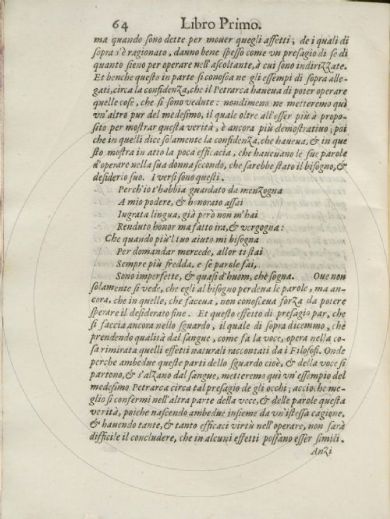 64 Libro Primo.
ma quando sono dette per mouer quegli affetti, de i quali di
sopra s'è ragionato, danno bene spesso come vn presagio di se di
quanto sieno per operare nell'ascoltante, à cui sono indirizzate.
Et benche questo in parte si conosca ne gli essempi di sopra alle-
gati, circa la confidenza, che il Petrarca haueua di poter operare
quelle cose, che si sono vedute: nondimeno ne metteremo quà
vn'altro pur del medesimo, il quale oltre all'esser più à propo-
sito per mostrar questa verità, è ancora più demostratiuo; poi
che in quelli dice solamente la confidenza, che haueua, & in que
sto mostra in atto la poca efficacia; che haueuano le sue parole
d'operare nella sua donna secondo, che sarebbe stato il bisogno, &
desiderio suo. I versi sono questi.
Perch'io t'habbia guardato da menzogna
A mio podere, & honorato assai
Ingrata lingua, già però non m'hai
Renduto honor ma fatto ira, & vergogna:
Che quando più'l tuo aiuto mi bisogna
Per domandar mercede, allor ti stai
Sempre più fredda, e se parole fai,
Sono imperfette, & quasi d'huom, che sogna. Oue non
solamente si vede, che egli al bisogno perdena le parole, ma an-
cora, che in quelle, che faceua, non conosceua forza da potere
sperare il desiderato fine. Et questo effetto di presagio par, che
si faccia ancora nello sguardo, il quale di sopra dicemmo, che
prendendo qualità dal sangue, come fa la voce, opera nella co-
sa rimirata quelli effetti naturali raccontati da i Filosofi. Onde
perche ambedue queste parti dello sguardo cioè, & della voce si
partono, & s'alzano dal sangue, metteremo quà vn'essempio del
medesimo Petrarca circa tal presagio de gli occhi; accioche me-
glio si confermi nell'altra parte della voce, & delle parole questa
verità, poiche nascendo ambedue insieme da vn'istessa cagione,
& hauendo tante, & tanto efficaci virtù nell'operare, non sarà
difficile il concludere, che in alcuni effetti possano esser simili.
Anzi